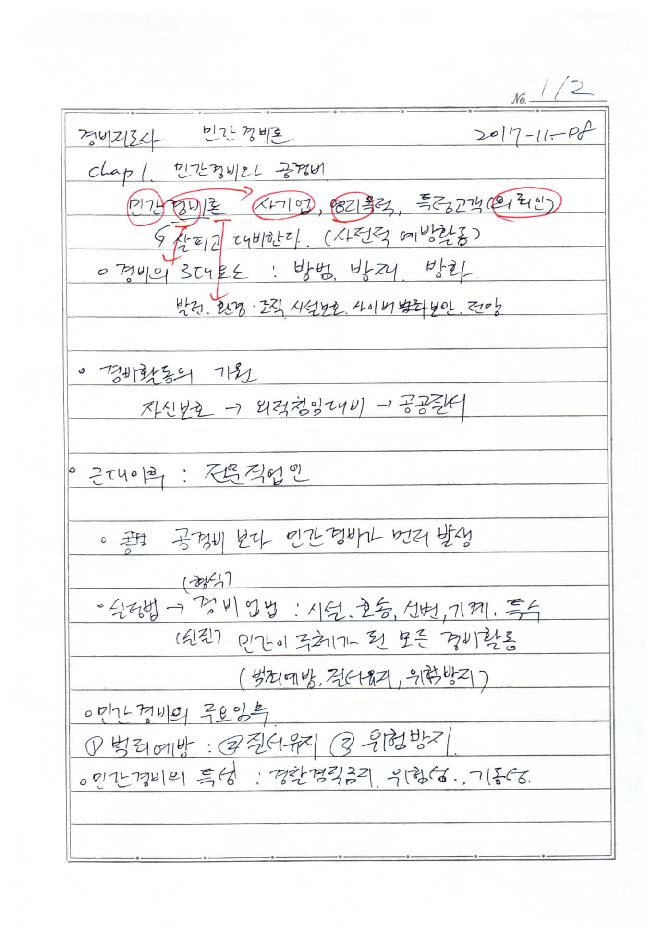 No. 1/2
경비지도사 민간경비론 2017-11-08
chap 1. 민간경비와 공경비
민간경비론 사기업, 영리목적, 특정고객(의뢰인)
↳ 살피고 대비한다. (사전적 예방활동)
○ 경비의 3대요소 : 방범, 방재, 방화
발전. 환경·조직 시설보호. 사이버 범죄보안.
○ 경비활동의 기원
자신보호 → 외적침입대비 → 공공질서
○ 근대이후 : 전문직업인
○ 공경비 보다 민간경비가 먼저 발생
(형식)
○ 실정법 → 경비업법 : 시설. 호송, 신변, 기계. 특수
(실질) 민간이 주체가 된 모든 경비활동
(범죄예방. 질서유지, 위험방지)
○ 민간경비의 주요임무
① 범죄예방 : ② 질서유지 ③ 위험방지.
○ 민간경비의 특성 : 위험성., 기동성.